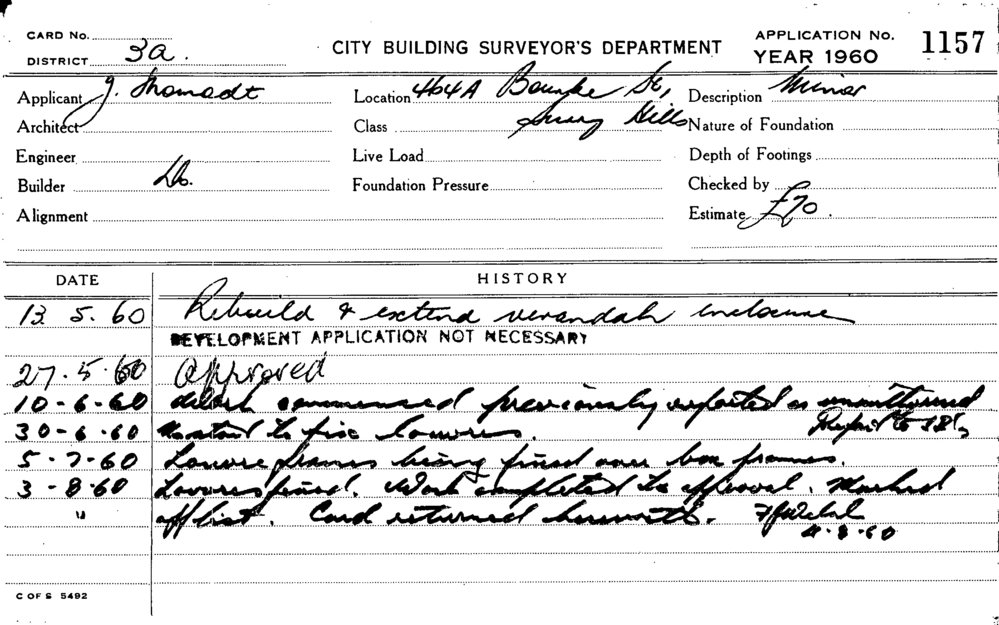 CARD No.
DISTRICT 3a.
CITY BUILDING SURVEYOR'S DEPARTMENT
APPLICATION No. 1157
YEAR 1960
Applicant J.
Location 464A Bourke St,
Surry Hills
Description Minor
Architect
Class
Nature of Foundation
Engineer
Live Load
Depth of Footings
Builder Do.
Foundation Pressure
Checked by
Alignment
Estimate £70.
DATE HISTORY
13. 5. 60 Rebuild & extend verandah enclosure
DEVELOPMENT APPLICATION NOT NECESSARY
27. 5. 60 Approved
10-6-60 Work commenced previously reported as unauthorised.
30-6-60 to fix louvres.
5-7-60 Louvre frames being fixed over box frames.
3-8-60 Louvres fixed. Work completed to approval. Marked
" off list. Card returned herewith.
4-8-60
C OF S 5492